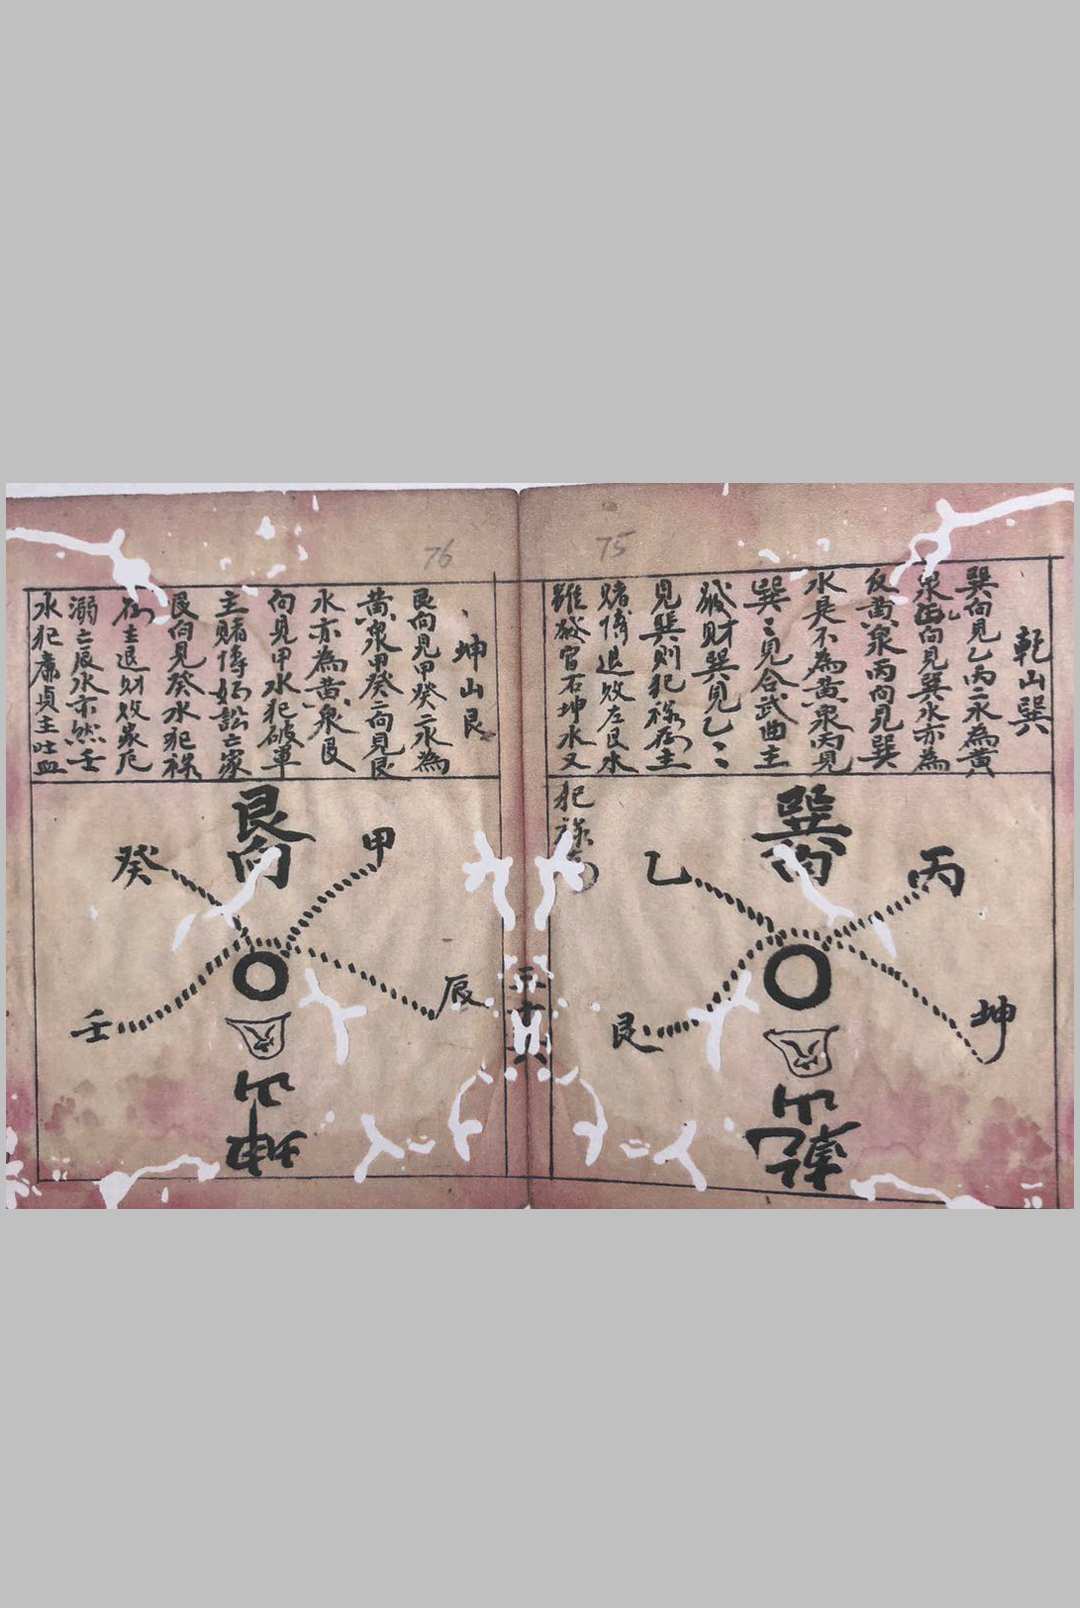 75
乾山巽
巽向見乙丙二水為黃
泉丙向見巽水亦為
反黃泉丙向見巽
水吴不為黃泉丙見
巽:見合武曲主
發財巽見乙:
見巽則犯祿存主
賭博退敗左艮水
雖發官石坤水又
犯祿
巽向
乙
丙
艮
坤
穴
乾山
76
坤山艮
艮向見甲癸二水為
黃泉甲癸二向見艮
水亦為黃泉艮
向見甲水犯破軍
主賭博好訟亡家
艮向見癸水犯祿
主退財敗家厄
溺亡辰水亦然壬
水犯廉貞主吐血
艮向
癸
甲
壬
辰
穴
坤山